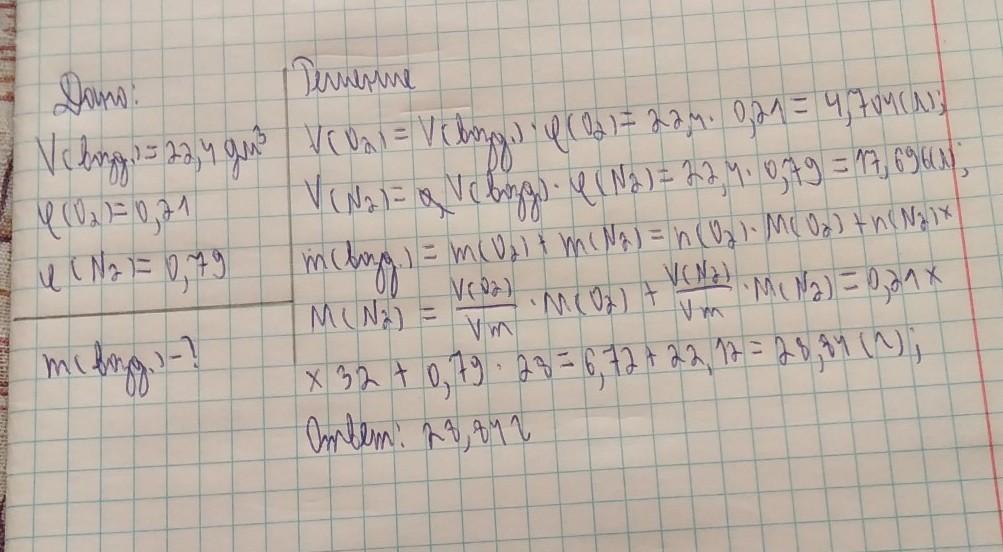 Дано:
V(возд.)=22,4 дм³
φ(O₂)=0,21
φ(N₂)=0,79
m(возд.)-?
Решение
V(O₂)=V(возд.)·φ(O₂)=22,4·0,21=4,704(л);
V(N₂)=V(возд)·φ(N₂)=22,4·0,79=17,696(л);
m(возд.)=m(O₂)+m(N₂)=n(O₂)·M(O₂)+n(N₂)×
M(N₂)=V(O₂)/Vm·M(O₂)+V(N₂)/Vm·M(N₂)=0,21×
×32+0,79·28=6,72+22,12=28,84(г);
Ответ: 28,84г